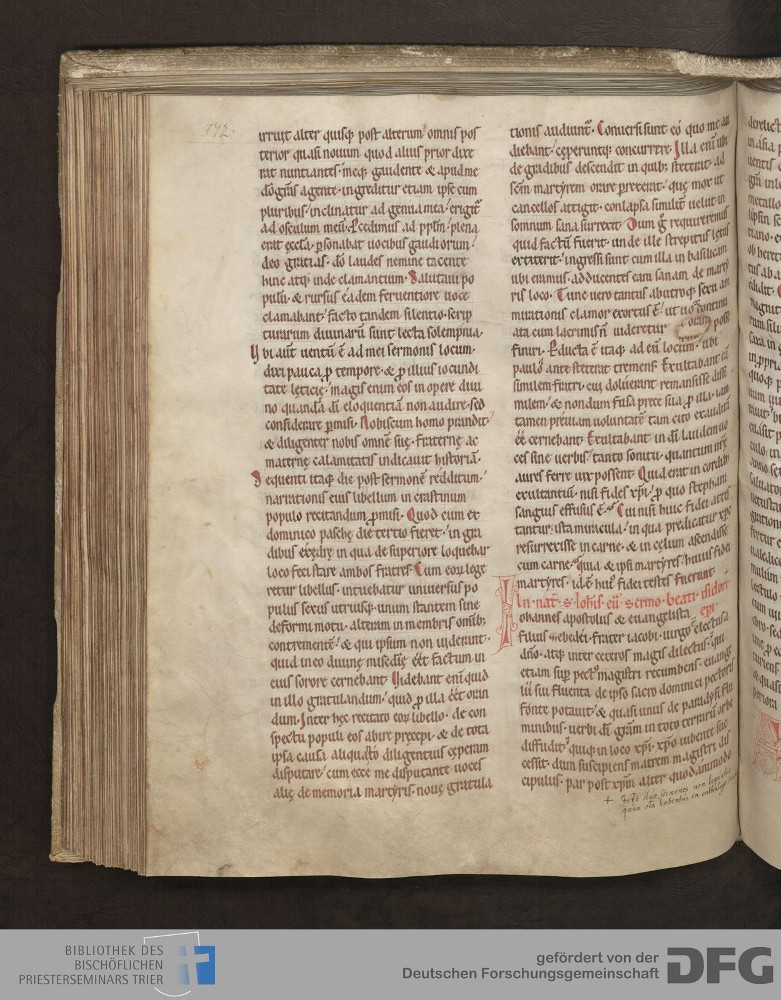 172.
irruit alter quisq; post alterum omnis pos
terior quasi nouum quod alius prior dixe
rat nuntiantes meq; gaudente & apud me
do gr̄as agente ingreditur etiam ipse cum
pluribus inclinatur ad genua mea erigit᷑
ad osculum meū. P̄cedimus ad pp̄lm plena
erat eccl̄a ꝑsonabat uocibus gaudiorum
deo gratias. do laudes nemine tacente
hinc atq; inde clamantium. Salutaui po
pulū. & rursus eadem feruentiore uoce
clamabant. facto tandem silentio scrip
turarum diuinarū sunt lecta sollempnia.
Vbi aūt uentū ē ad mei sermonis locum.
dixi pauca ꝓ tempore & ꝓ illius iocundi
tate leticię magis enim eos in opere diui
no quandā dī eloquentiā non audire sed
considerare ꝑmisi. Nobiscum homo prandit
& diligenter nobis omnē suę fraternę ac
maternę calamitatis indicauit historiā.
Sequenti itaq; die post sermonē redditum
narrationis eius libellum in crastinum
populo recitandum ꝓmisi. Quod cum ex
dominico paschę die tertio fieret in gra
dibus exedrę in qua de superiore loquebar
loco feci stare ambos fratres. Cum eoꝝ lege
retur libellus. intuebatur uniuersus po
pulus sexus utriusq; unum stantem sine
deformi motu. alteram in membris omīb;
contrementē. & qui ipsum non uiderant.
quid in eo diuinę mis̄edię eēt factum in
eius sorore cernebant. Videbant enī quid
in illo gratulandum. quid ꝓ illa eēt oran
dum. Inter hęc recitato eoꝝ libello de con
spectu populi eos abire pręcepi. & de tota
ipsa causa aliquāto diligentius ceperam
disputare. cum ecce me disputante uoces
alię de memoria martyris nouę gratula
tionis audiunt᷑. Conuersi sunt eo quo me au
diebant. ceperuntq; concurrere. Illa enī ubi
de gradibus descendit in quib; steterat ad
sc̄m martyrem orare perrexerat. quę mox ut
cancellos attigit. conlapsa similit᷑ uelut in
somnum sana surrexit. Dum g̊ requireremus
quid factū fuerit. unde ille strepitus letus
extiterit. ingressi sunt cum illa in basilicam
ubi eramus. adducentes eam sanam de marty
ris loco. Tunc uero tantus ab utroq; sexu am
mirationis clamor exortus ē. ut uox continu
ata cum lacrimis n̄ uideretur posse
finiri. Perducta ē itaq; ad eū locum. ubi
paulo ante steterat tremens. Exultabant eā
similem fratri cui doluerant remansisse dissi
milem. & nondum fusa prece sua ꝓ illa. iam
tamen preuiam uoluntatē tam cito exauditā
eē cernebant. Exultabant in dī laudem uo
ces sine uerbis tanto sonitu quantum nr̄ę
aures ferre uix possent. Quid erat in cordib;
exultantiū. nisi fides xp̄i ꝓ quo stephani
sanguis effusus ē. Cui nisi huic fidei attes
tantur ista miracula in qua predicatur xp̄c
resurrexisse in carne. & in cęlum ascendisse
cum carne. quia & ipsi martyres huius fidei
martyres. id ē hui᷒ fidei testes fuerunt.
In nat̄. s. Ioh̄is eū sermo beati isidori
ep̄i.
Iohannes apostolus & euangelista
filius zebedei. frater iacobi. uirgo electus a
dn̄o. atq; inter ceteros magis dilectus. qui
etiam sup̄ pect᷒ magistri recumbens. euange
lii sui fluenta de ipso sacro dominici pectoris
fonte potauit. & quasi unus de paradysi flu
minibus. uerbi dī gr̄am in toto terrarū orbe
diffudit. quiq; in loco xp̄i. xp̄o iubente suc
cessit. dum suscipiens matrem magistri dis
cipulus. par post xp̄m alter quodammodo
BIBLIOTHEK DES
BISCHÖFLICHEN
PRIESTERSEMINARS TRIER
gefördert von der
Deutschen Forschungsgemeinschaft
DFG